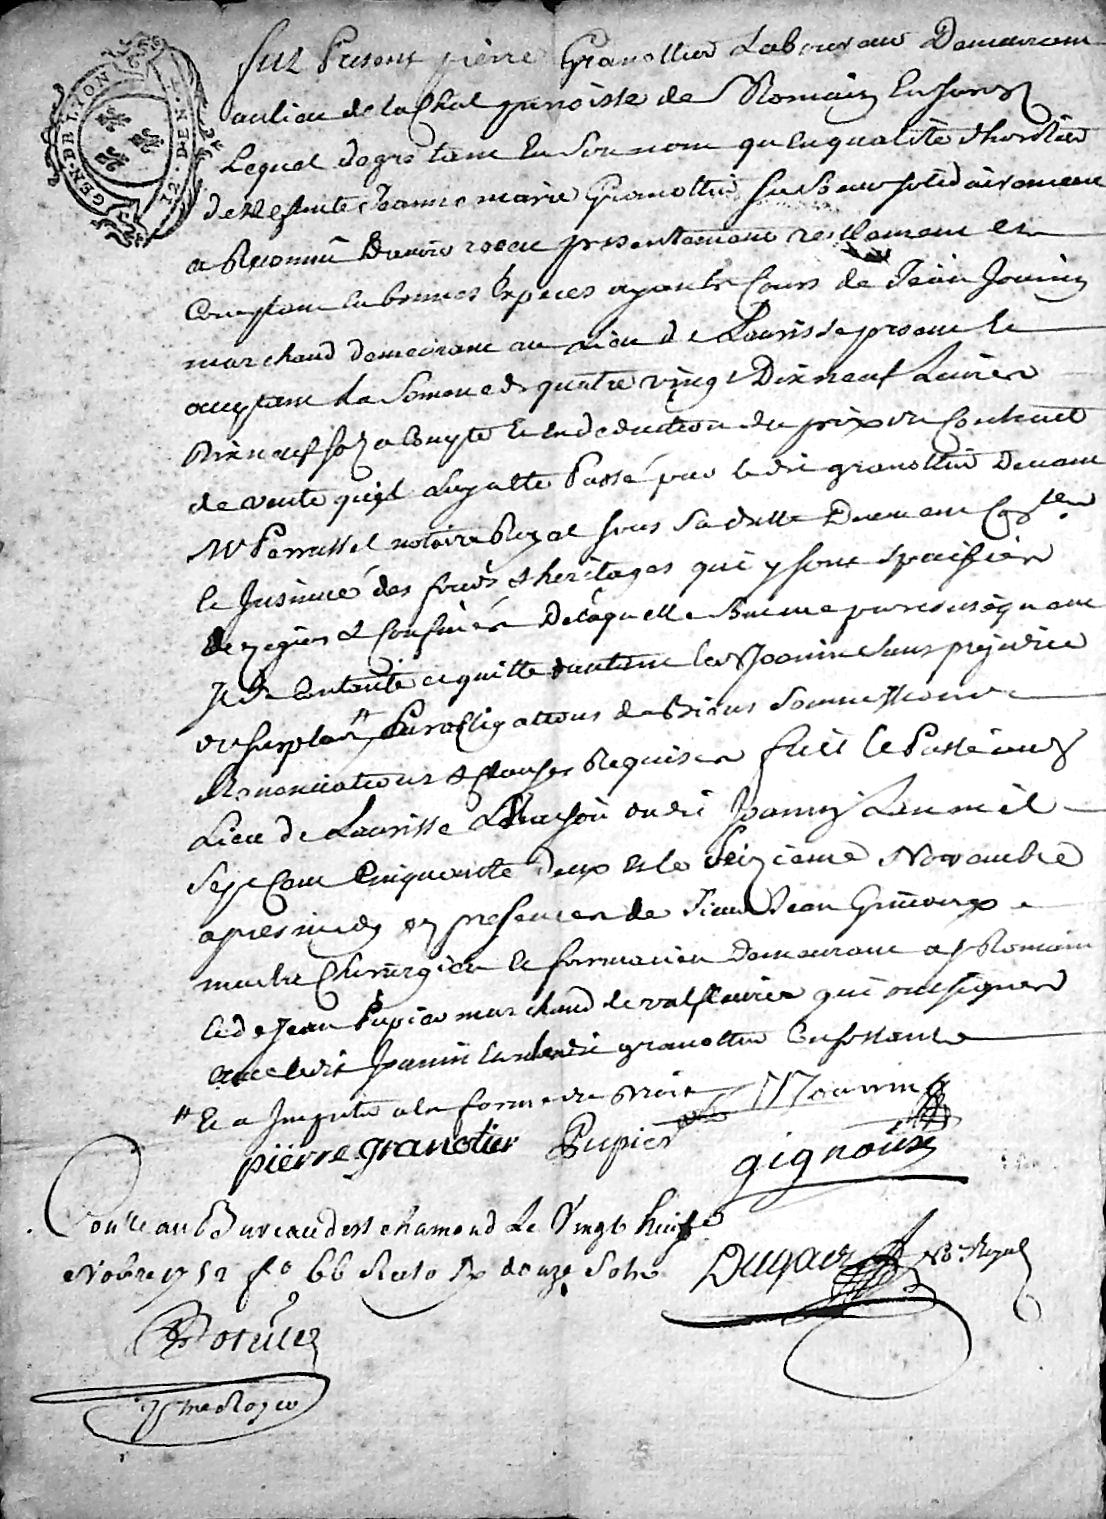 GEN. DE LYON
12. DEN. 1.
fut Present pierre Granottier Laboureur Demeurant
au lieu de la Chal de St Romain En Jarez
Lequel de gré tant En Son nom qu'en qualité d'heritier
de deffunte Jeanne marie Granottier sa Soeur solidairement
a Reconnu D'avoir receu presentement reellement et
Comptant En bonnes Especes ayants Cours de Jean Joanin
marchand demeurant au Lieu de Laurisse present et
acceptant La Somme de quatre vingt Dix neuf Livres
Dix neuf sols a Compte et En deduction du prix du Contract
de vente qu'il luy a Passé par ledit granottier Devant
Me Perrussel notaire Royal sous Sa datte Duement
et Insinué des fonds & heritages qui y sont Specifiés
& Confinés De laquelle Somme par consequent
Il Se Contente et quitte d'autant led Joanin Sans prejudice
du surplus # Par obligations de Biens Soumissions
Renonciations & clauses Requises fait et Passé aud
Lieu de Laurisse Maison dudit Joanin L'an mil
Sept Cent Cinquante Deux et le Seizieme Novembre
apres midy En presence de Sieur Jean Gignoux
maitre Chirurgien et Demeurant a St Romain
et de Jean Pupier marchand de valfleurie qui ont signés
avec ledit Joanin et ledit granottier
# Et a Imputer a la forme du Droit Joannin
pierre granotier Pupier gignoux
Con'lé au Bureau de St chamond Le Vingt huit
Novbre 1752 fo 66 Recto Rx douze Sols Dugas No.re Royal